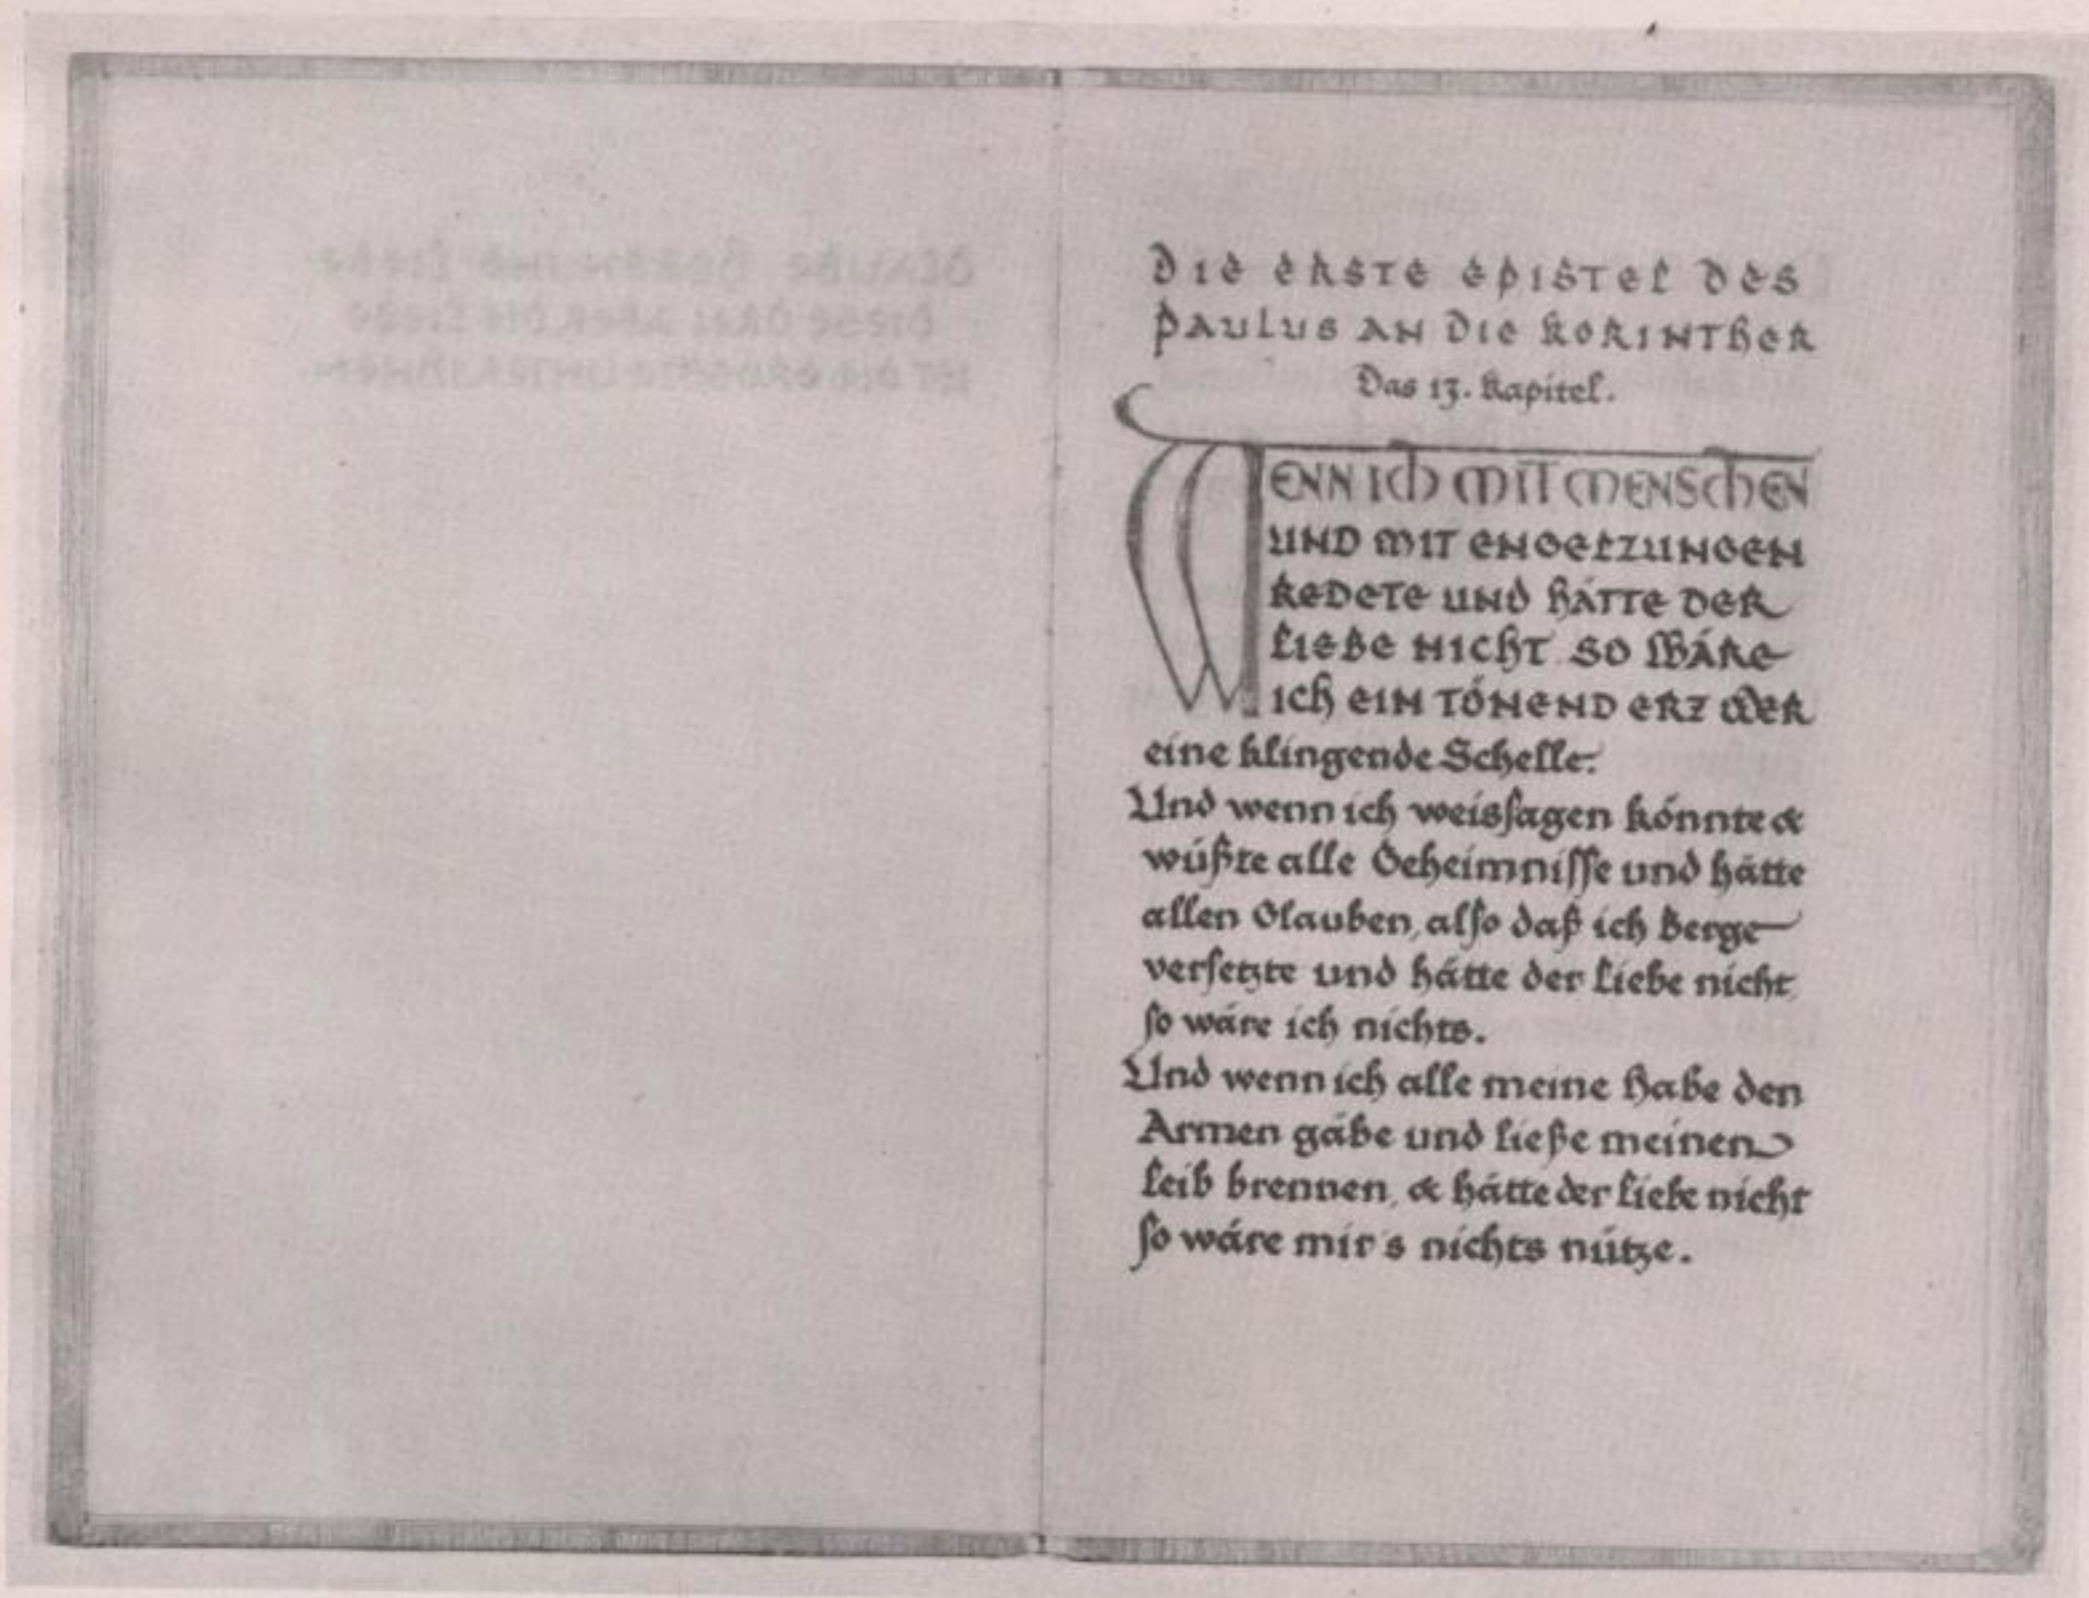 DIE ERSTE EPISTEL DES
PAULUS AN DIE KORINTHER
Das 13. Kapitel.
WENN ICH MIT MENSCHEN
UND MIT ENGELZUNGEN
REDETE UND HÄTTE DER
LIEBE NICHT SO WÄRE
ICH EIN TÖNEND ERZ ODER
eine klingende Schelle.
Und wenn ich weisſagen könnte &
wüßte alle Geheimniſſe und hätte
allen Glauben, alſo daß ich Berge
verſetzte und hätte der Liebe nicht,
ſo wäre ich nichts.
Und wenn ich alle meine Habe den
Armen gäbe und ließe meinen
Leib brennen, & hätte der Liebe nicht
ſo wäre mir's nichts nütze.